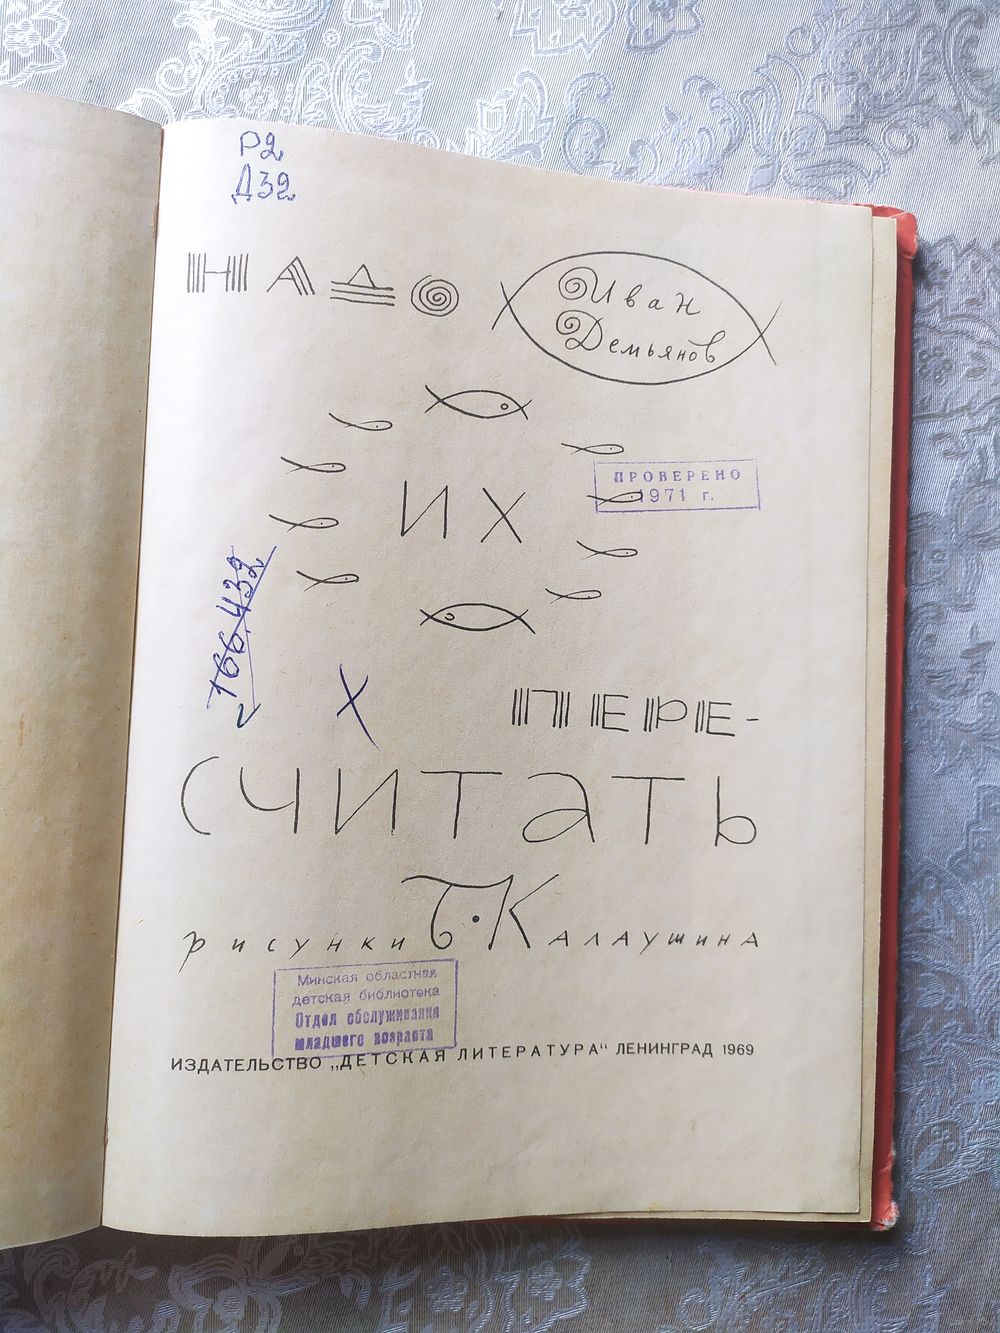 Р2
Д32
НАДО
Иван
Демьянов
ИХ
ПРОВЕРЕНО
1971 г.
166.432
ПЕРЕ-
СЧИТАТЬ
рисунки Б. Калаушина
Минская областная
детская библиотека
Отдел обслуживания
младшего возраста
ИЗДАТЕЛЬСТВО „ДЕТСКАЯ ЛИТЕРАТУРА“ ЛЕНИНГРАД 1969